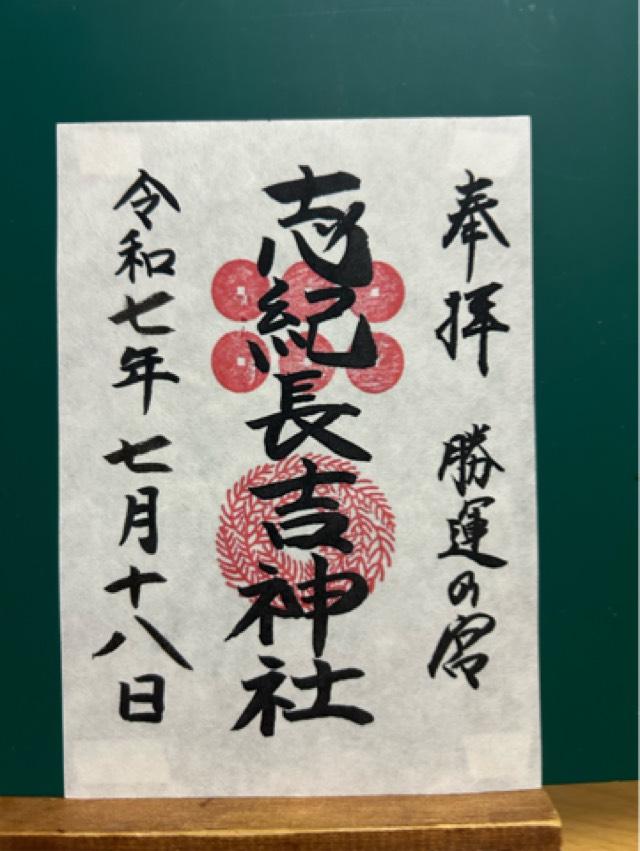 奉拝 勝運の宮
志紀長吉神社
令和七年七月十八日